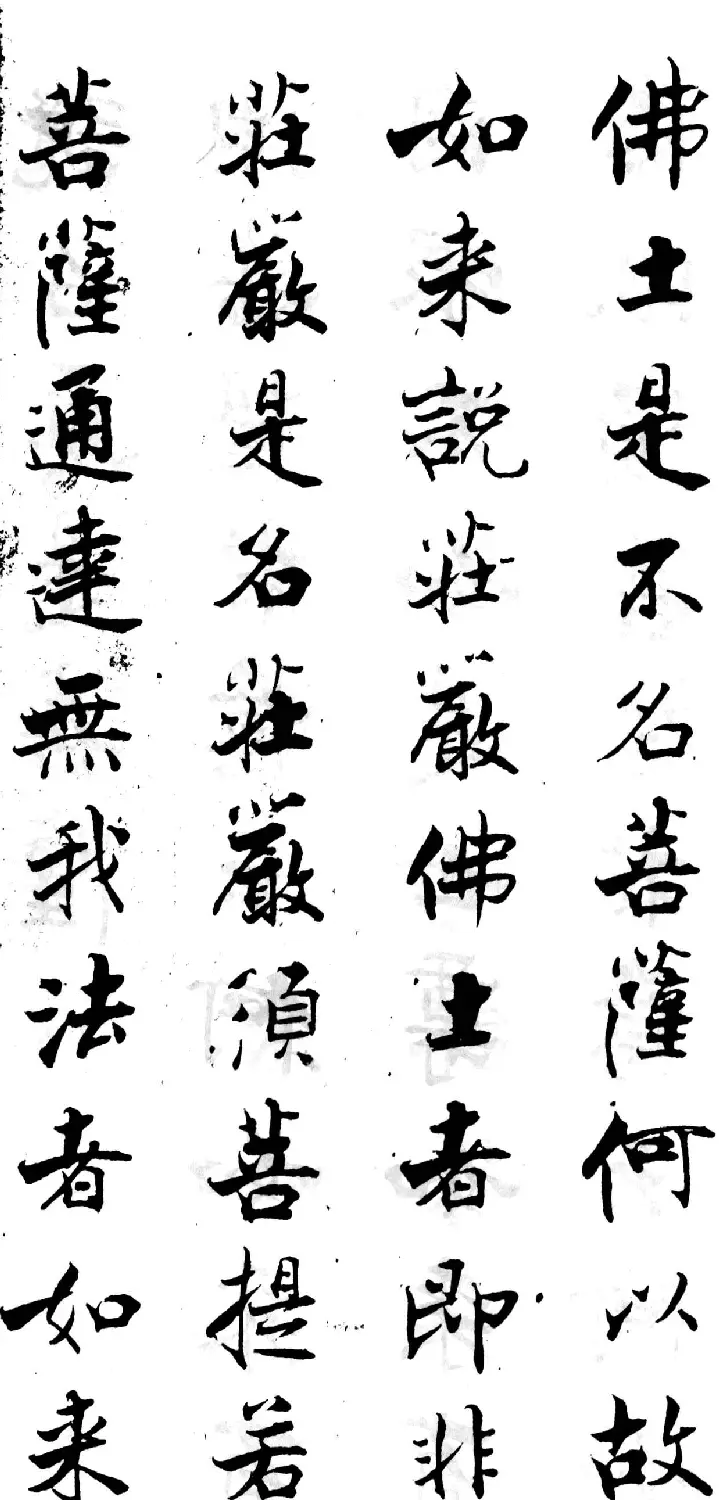 佛土是不名菩薩何以故
如来說莊嚴佛土者即非
莊嚴是名莊嚴須菩提若
菩薩通達無我法者如来